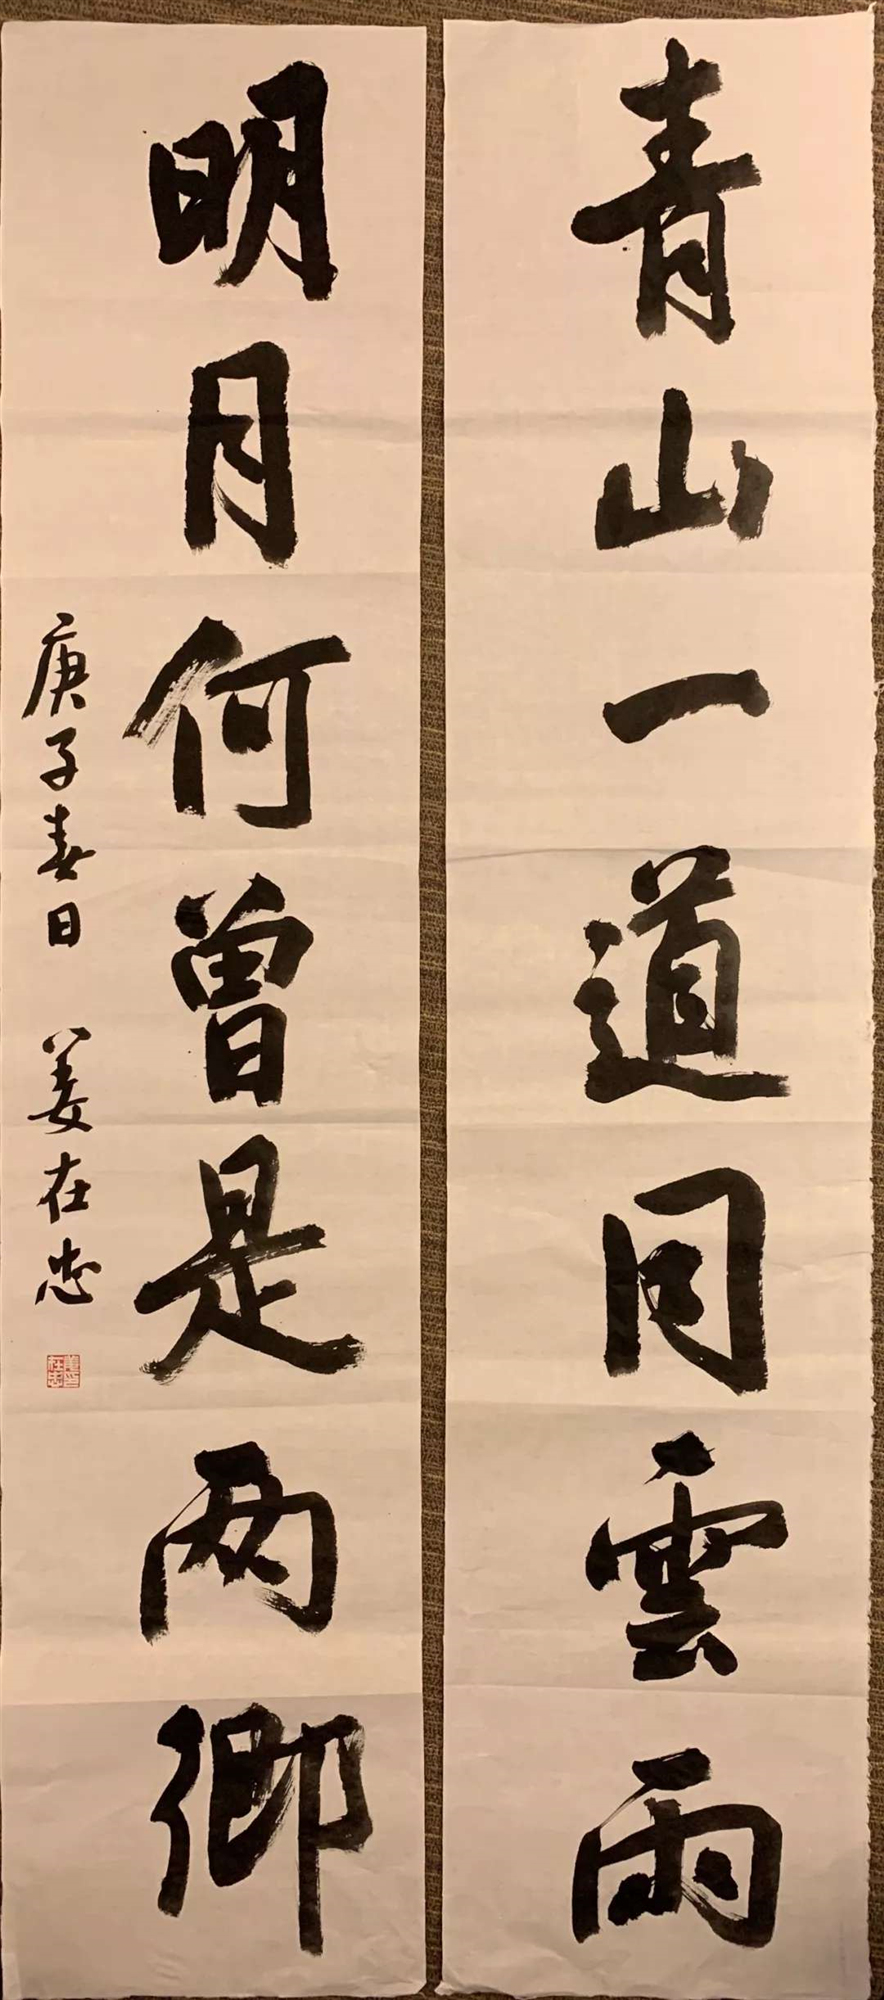 青山一道同雲雨
明月何曾是两鄉
庚子春日 姜在忠
姜印在忠